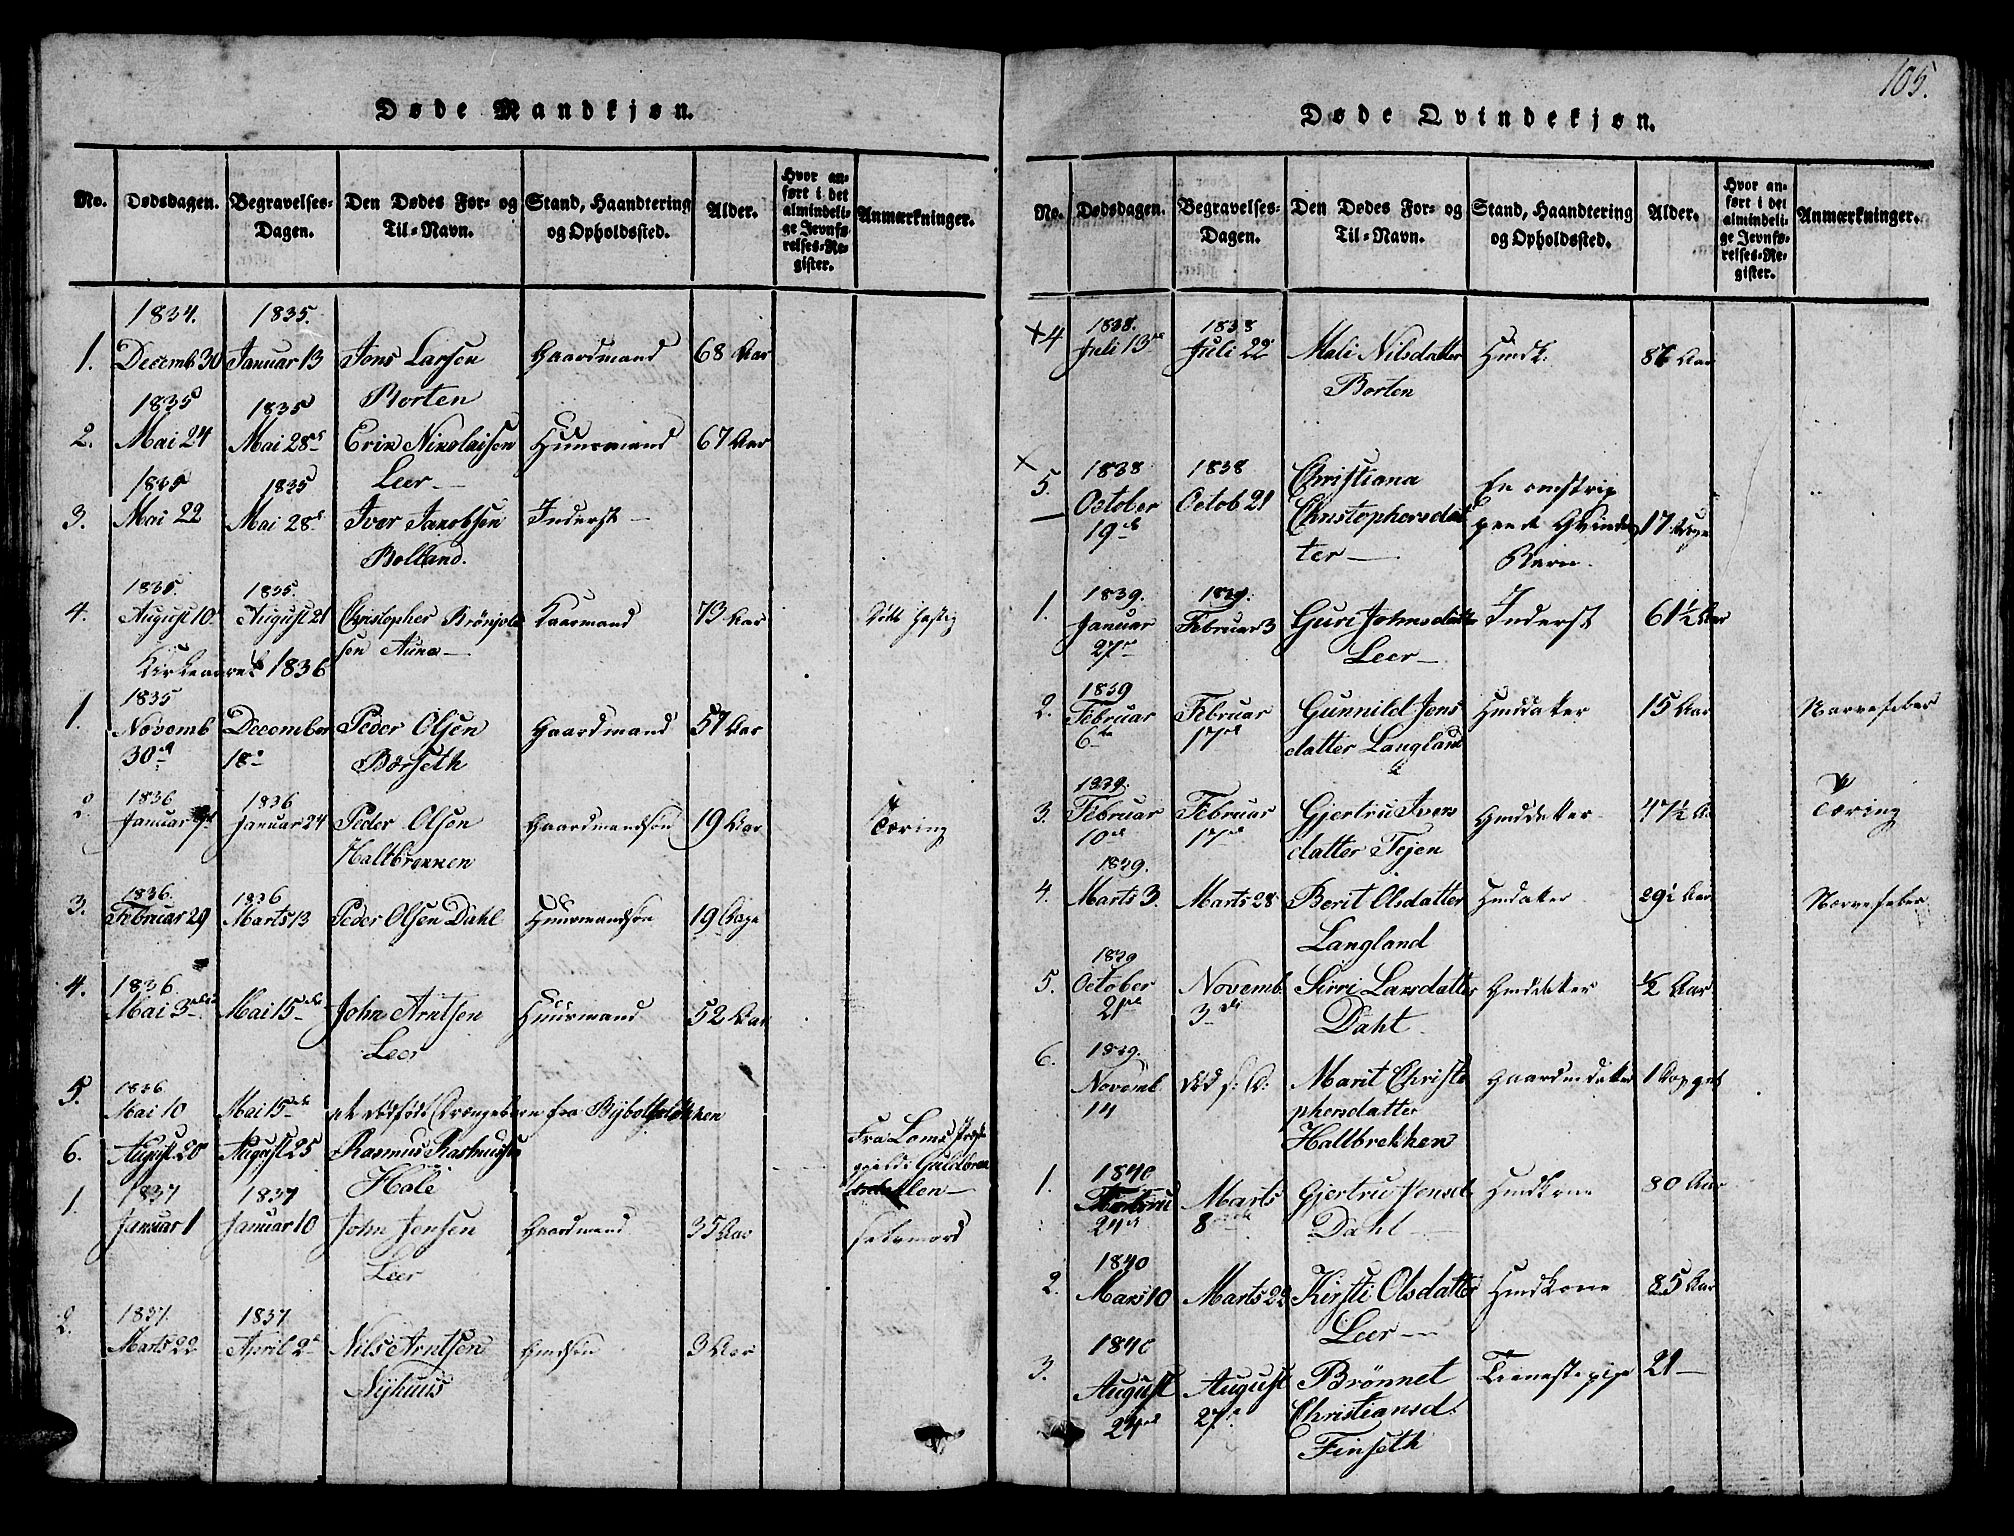 105.
Døde Mandkjøn.
No. Dødsdagen. Begravelses-Dagen. Den Dødes For- og Til-Navn. Stand, Haandtering og Opholdssted. Alder. Hvor anført i det almindelige Jevnførelses-Register. Anmærkninger.
1834. 1835.
1. Decemb 30 Januar 13 Jens Larsen Gaardmand 68 Aar
Borten
1835 1835
2. Mai 24 Mai 28 Erik Nikolaisen Huusmand 67 Aar
Leer
1835 1835
3. Mai 22 Mai 28 Iver Jacobsen Inderst
Bolland.
1835. 1835.
4. August 10 August 21 Christopher Brønjols Kaarmand 73 Aar
sen Aune
Kirkeaaret 1836
1835
1. Novemb December Peder Olsen Gaardmand 57 Aar
30 18 Børseth
1836 1836
2 Januar Januar 24 Peder Olsen Gaardmandsøn 19 Aar Tæring
Haltbrekken
1836. 1836
3. Februar 29 Marts 13 Peder Olsen Dahl Huusmandsøn 19 Dage
4. 1836.
Mai 3 Mai 15 John Arntsen Huusmand 52 Aar
Leer
5. 1836
Mai 10 Mai 15 et dødfødt Drengebarn fra
6. August 20 August 25 Rasmus Rasmussen Fra Loms Præste
gjeld i Guldbran
Hole
1. 1837 1837
Januar 1 Januar 10 John Jensen Gaardmand 35 Aar Selvmord
Leer
2. 1837. 1837
Marts 22 April 2 Nils Arntsen 3 Aar
Nyhuus
Døde Qvindekjøn.
No. Dødsdagen. Begravelses-Dagen. Den Dødes For- og Til-Navn. Stand, Haandtering og Opholdssted. Alder. Hvor anført i det almindelige Jevnførelses-Register. Anmærkninger.
1838. 1838
x4 Juli 13 Juli 22 Mali Nilsdatter
Borten
x 1838 1838 Christiana
5. October Octob 21 Christophersdat
19 ter
17 Uger
1839. 1839.
1. Januar Februar 3 Guri Johnsdatter Inderst 61½ Aar
27 Leer
1839
2. Februar Februar Gunnild Jens 15 Aar Nervefeber
6 17 datter Langland
1839.
3. Februar Februar Gjertru Ivers 47½ Tæring
10 17 datter Tejen
1839.
4. Marts 3 Marts 28 Berit Olsdatter Nervefeber
Langland
1839
5. October Novemb. Sirri Larsdatter ½ Aar
21 3 Dahl
6. 1839.
Novemb Marit Christo
14 phersdatter
Haltbrekken
1. 1840
Marts Gjertru 80 Aar
24 8 Dahl
1840
2. Mars 10 Marts 22 Kirsti Olsdatter 85 Aar
Leer
1840
3. August August Brønnet Tienestepige 21
24 27 Christiansd.
Finseth